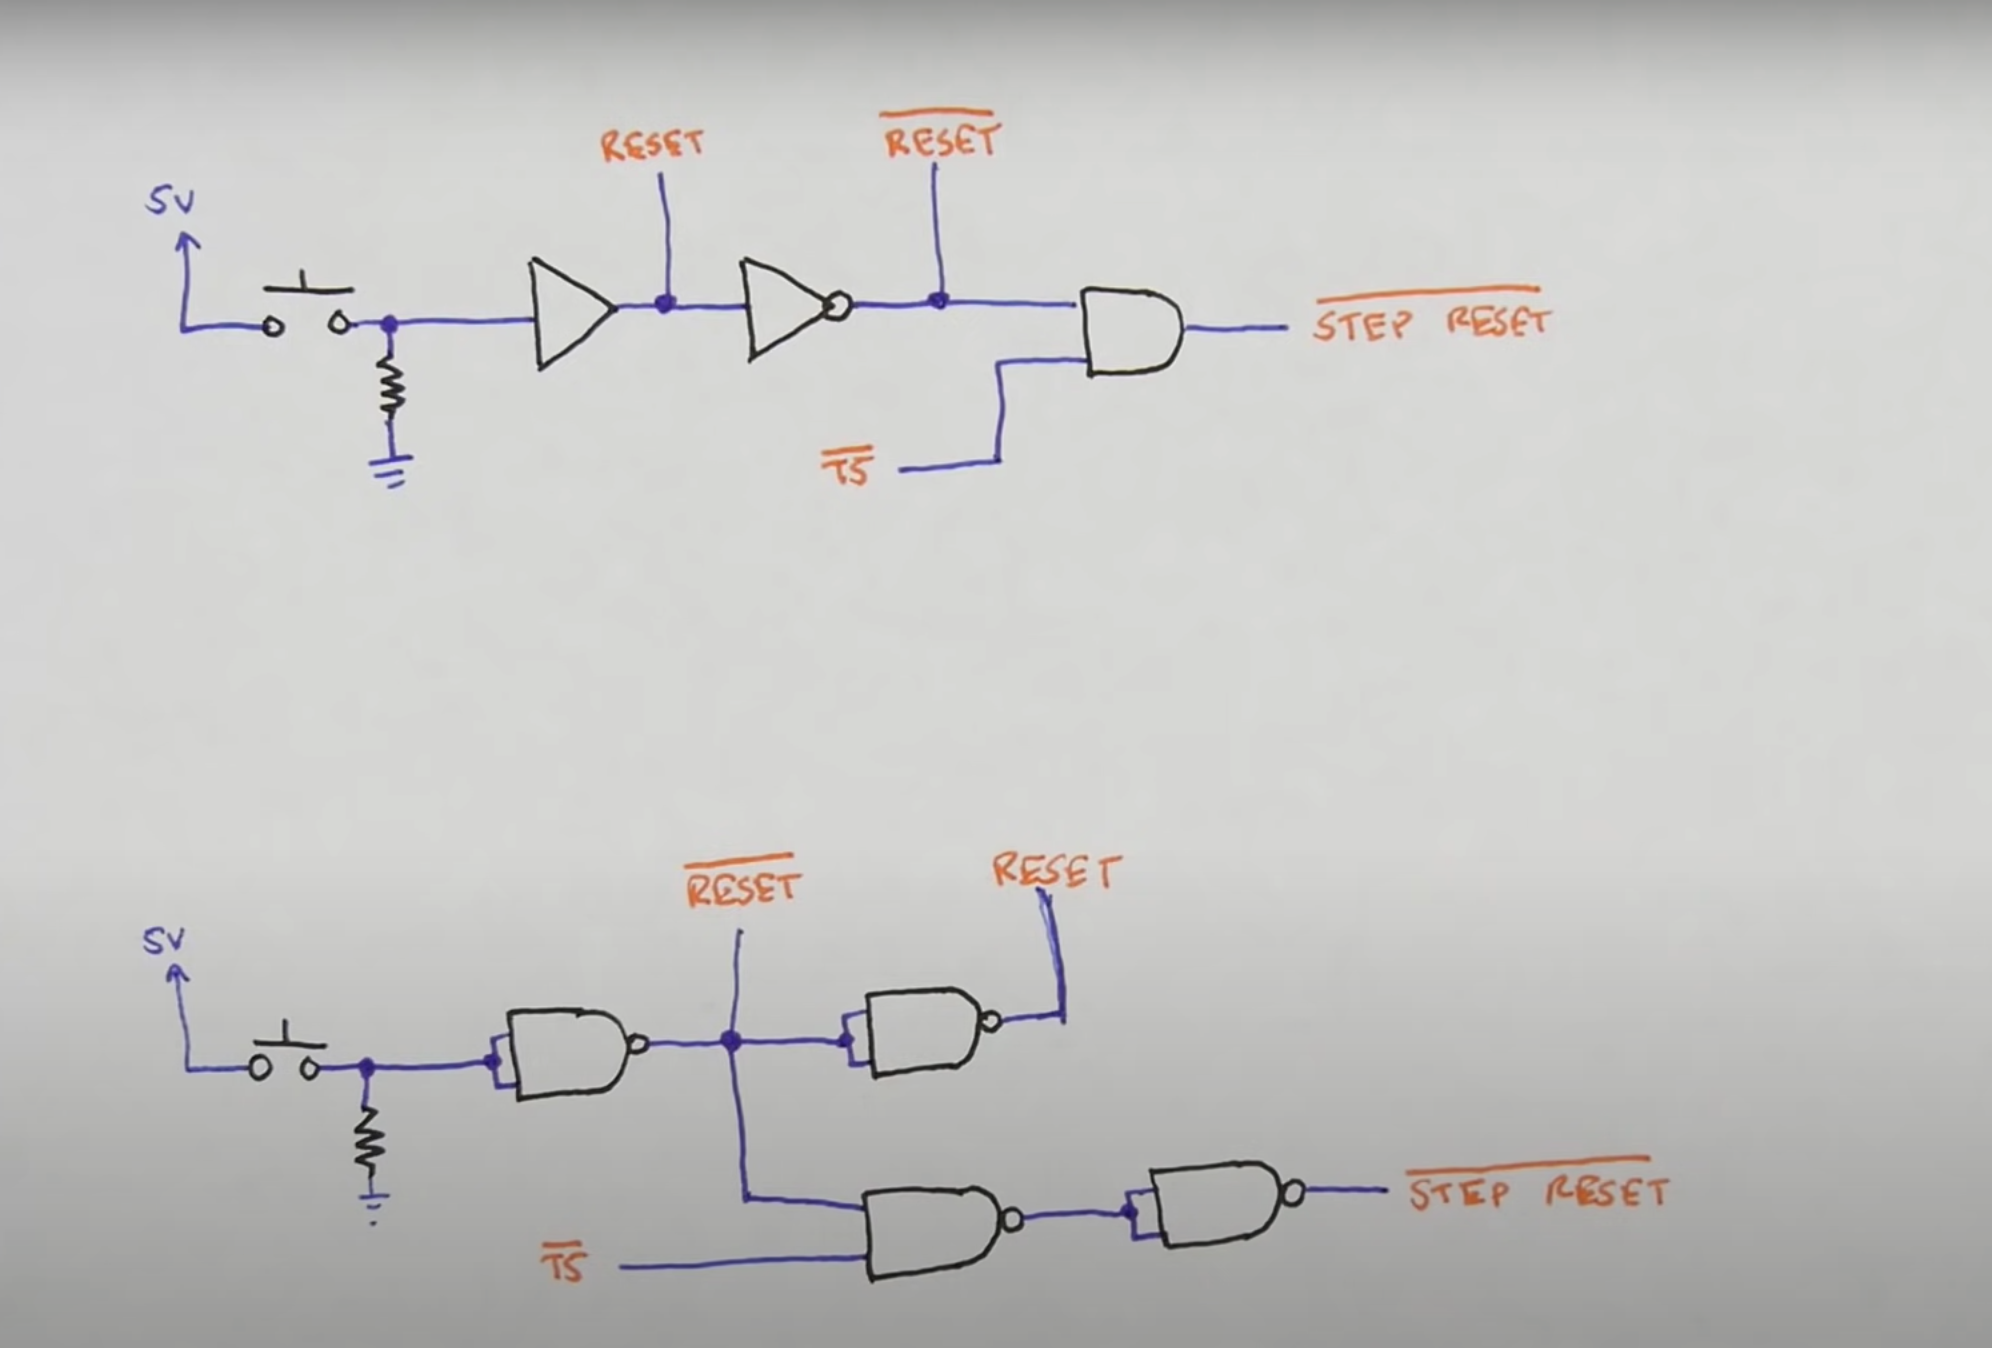 RESET
R̅E̅S̅E̅T̅
5V
S̅T̅E̅P̅ ̅R̅E̅S̅E̅T̅
T̅5̅
R̅E̅S̅E̅T̅
RESET
5V
S̅T̅E̅P̅ ̅R̅E̅S̅E̅T̅
T̅5̅